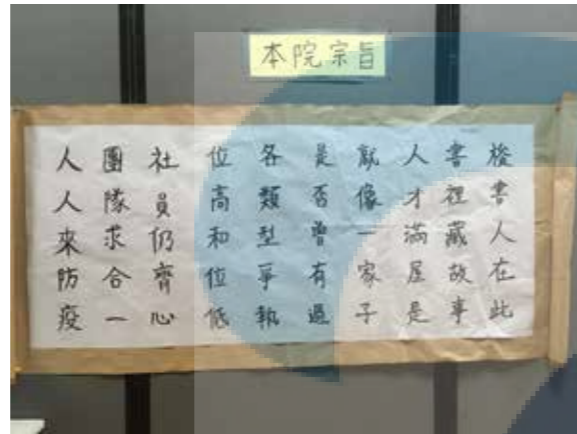 本院宗旨
書人在此
書裡藏故事
人才滿屋是
就像一家子
是否曾有過
各類型爭執
位高和位低
社員仍齊心
團隊求合一
人人來防疫